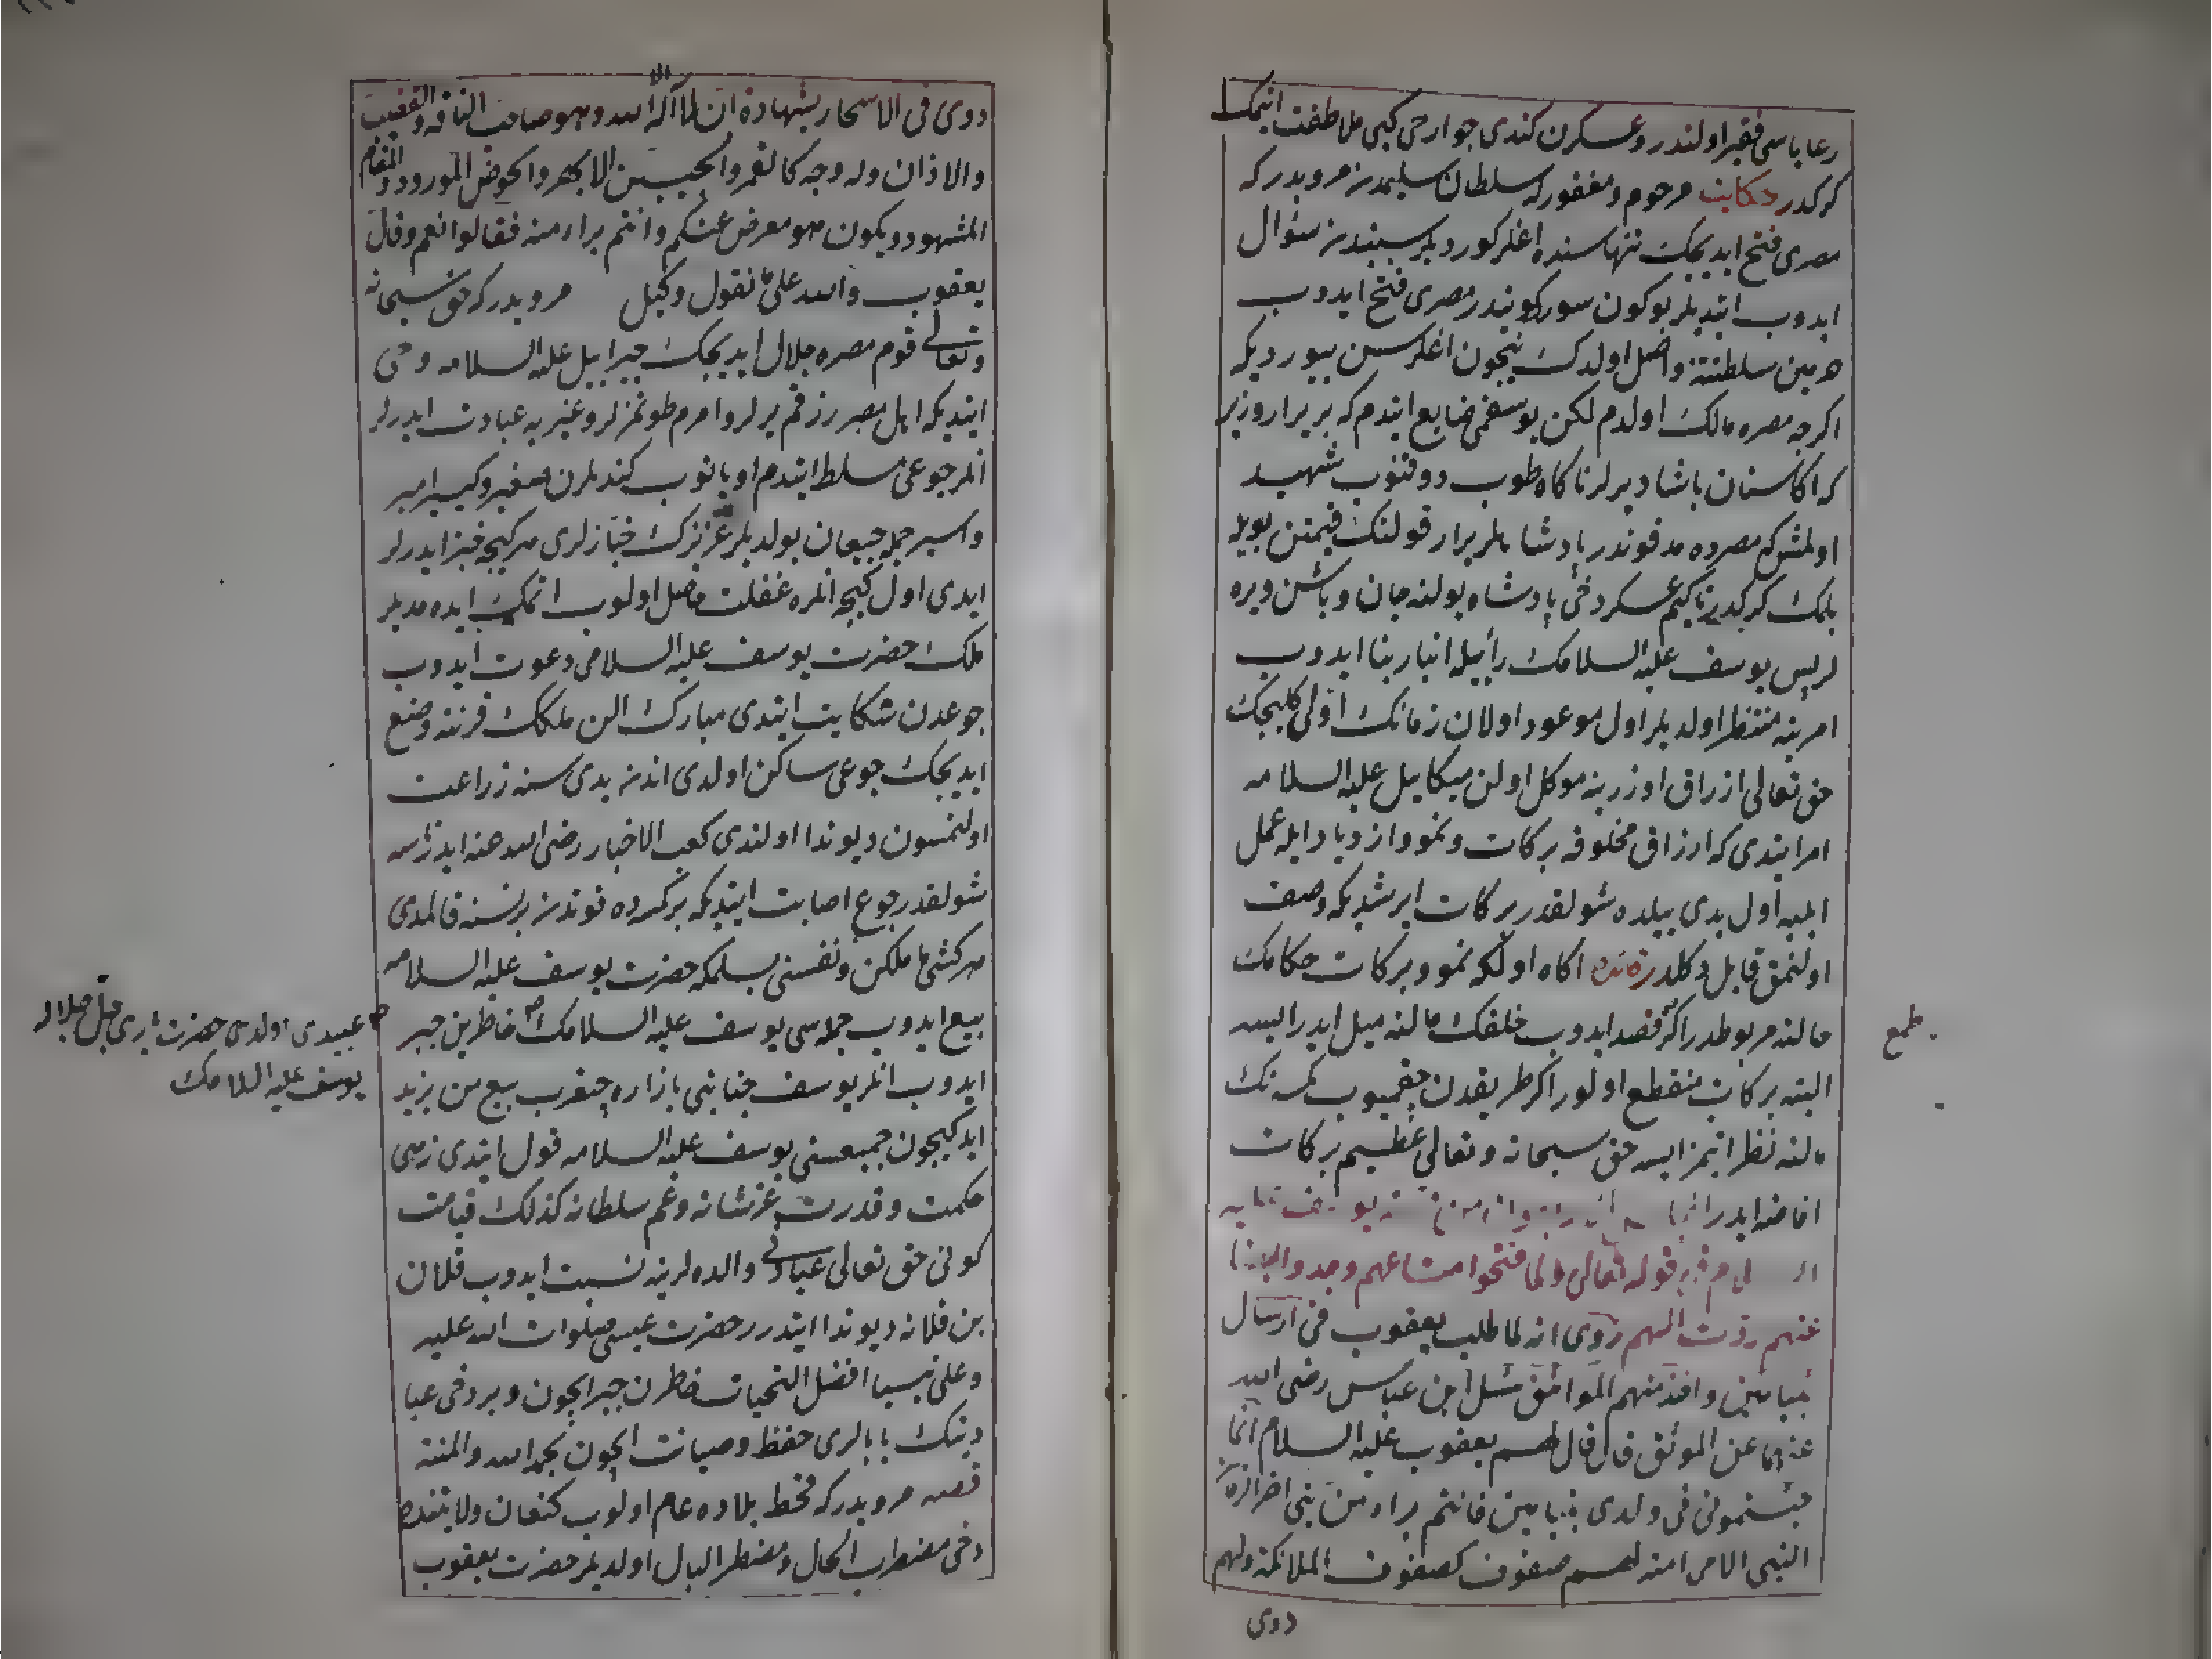 رعاياسى فقير اولندر وعسكرن كندى جوارحى كبى ملاطفت اتمك
كركدر حكايت مرحوم ومغفور له سلطان سليمدن مرويدركه
مصرى فتح ايديجك تنهاسنده اغلر كورديلر سببندن سؤال
ايدوب ايتديلر بوكون سور كونيدر مصرى فتح ايدوب
حرمين سلطنتنه واصل اولدك نيچون اغلرسن بيورديكه
اكرچه مصره مالك اولدم لكن يوسفمى ضايع ايتدم كه بر يرار وزير
كه اكا سنان باشا ديرلر ناكاه طوب دوقنوب شهيد
اولمشكه مصرده مدفوندر پادشاهلر يرار قولنك قيمتن بويله
بلمك كركدر تاكيم عسكر دخى پادشاه يولنه جان وباشن ويره
لر پس يوسف عليه السلامك رأييله انبار بنا ايدوب
امرينه منتظر اولديلر اول موعود اولان زمانك اولى كليجك
حق تعالى ازراق اوزرينه موكل اولن ميكاييل عليه السلامه
امر ايتدى كه ارزاق مخلوقه بركات ونمو وازدياد ايله عمل
ايليه اول يدى ييلده شولقدر بركات ايرشديكه وصف
اولنمق قابل دكلدر اكاه اول كه نمو وبركات حكامك
حالنه مربوطدر اكر قصد ايدوب خلقك مالنه ميل ايدر ايسه
البته بركات منقطع اولور اكر طريقدن چقميوب كمسنك
مالنه نظر ايتمز ايسه حق سبحانه وتعالى عظيم بركات
افاضه ايدر
قوله تعالى ولما فتحوا متاعهم وجدوا
عنهم ردت اليهم روى انه لما طلب يعقوب فى ارسال
بنيامين واخذ منهم المواثق سئل ابن عباس رضى الله
عنهما عن الموثق قال قال لهم يعقوب عليه السلام انما
جئتمونى فى ولدى بنيامين فانتم براء من نبى اخر الزمان
النبى الامى امته لهم صفوف كصفوف الملائكة ولهم
دوى
طمع
دوى فى الاسحار بشهادة ان لا اله الا الله وهو صاحب الناقة والقضيب
والاذان وله وجه كالقمر والجبين الازهر والحوض المورود والمقام
المشهود ويكون هو معرض عنكم وانتم براء منه فقالوا نعم وقال
يعقوب والله على ما نقول وكيل مرويدركه حق سبحانه
وتعالى قوم مصره جلال ايديجك جبراييل عليه السلامه وحى
ايتديكه اهل مصر رزقم يرلر وامرم طوتمزلر وغيريه عبادت ايدرلر
انلر جوعى مسلط ايتدم اويانوب كنديلرن صغير وكبير امير
واسير جمله جيعان بولديلر عزيزك خبازلرى هر كيجه خبز ايدرلر
ايدى اول كيجه انلره غفلت حاصل اولوب اتمك ايده مديلر
ملك حضرت يوسف عليه السلامى دعوت ايدوب
جوعدن شكايت ايتدى مبارك الن ملكك قرننه وضع
ايديجك جوعى ساكن اولدى اندن يدى سنه زراعت
اولنمسون ديو ندا اولندى كعب الاخبار رضى الله عنه ايدر
شولقدر جوع اصابت ايتديكه بر كسرده قوتدن برنسنه قالمدى
هر كشى ملكن ونفسنى بيلمكه حضرت يوسف عليه السلامه
بيع ايدوب جمله سى يوسف عليه السلامك خاطرين جبر
ايدوب انلر يوسف جنابنى بازاره چيقرب بيع من يزيد
ايدكيچون جميعسنى يوسف عليه السلامه قول ايتدى زهى
حكمت وقدرت عز شانه وعم سلطانه كذلك قيامت
كونى حق تعالى عبادى والده لرينه نسبت ايدوب فلان
بن فلانه ديو ندا ايتدرر حضرت عيسى صلوات الله عليه
وعلى نبينا افضل التحيات خاطرن جبر ايچون وبر دخى عبا
دينك بابالرى حفظ وصيانت ايچون بحمد الله والمنته
قصه مرويدركه قحط بلاده عام اولوب كنعان ولايتنده
دخى مضطرب الحال ومضطر البال اولديلر حضرت يعقوب
عبيدى اولدى حضرت بارى جل جلاله
يوسف عليه السلامك